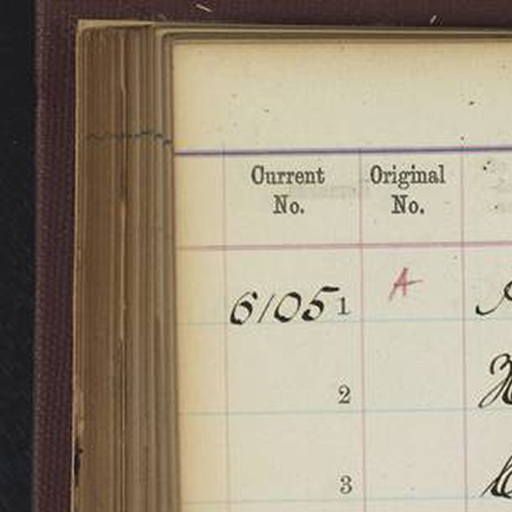 Current Original
No. No.
61051 A
2
3